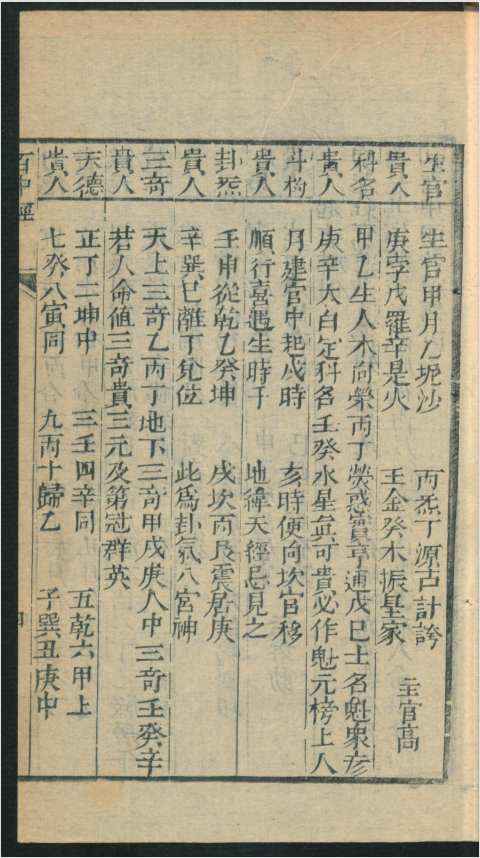 生官 生官甲月乙坭沙 丙炁丁源古計誇
貴人 庚孛戊羅辛是火 壬金癸木振皇家 主官高
科名 甲乙生人木向榮丙丁熒惑賣亨通戊巳土名魁衆彥
貴人 庚辛太白定科名壬癸水星眞可貴必作魁元榜上人
斗杓 月建官中起戌時 亥時便向坎官移
貴人 順行喜遇生時干 地緯天經忌見之
卦炁 壬甲從乾乙癸坤 戊坎丙艮震居庚
貴人 辛巽巳離丁兌位 此爲卦氣八宮神
三竒 天上三奇乙丙丁地下三竒甲戊庚人中三竒壬癸辛
貴人 若人命値三竒貴三元及第冠群英
天德 正丁二坤中 三壬四辛同 五乾六甲上
貴人 七癸八寅同 九丙十歸乙 子巽丑庚中
百中經 一 四